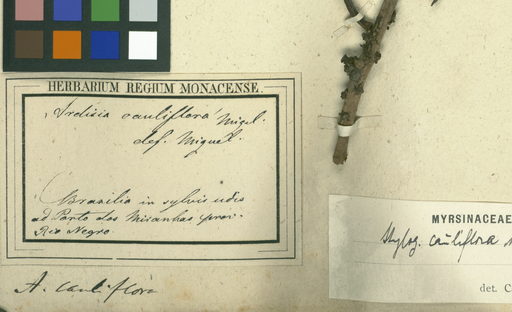 HERBARIUM REGIUM MONACENSE.
Ardisia cauliflora Miqel.
det. Miquel.
Brasilia in sylvis udis
ad Porto dos Miranhas prov.
Rio Negro
A. cauliflora
MYRSINACEAE
Stylog. cauliflora
det. C